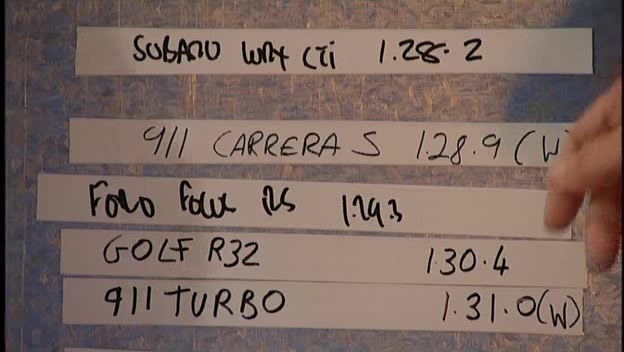 SUBARU WRX STi 1.28.2
911 CARRERA S 1.28.9 (W)
FORD FOCUS RS 1.29.3
GOLF R32 1.30.4
911 TURBO 1.31.0 (W)